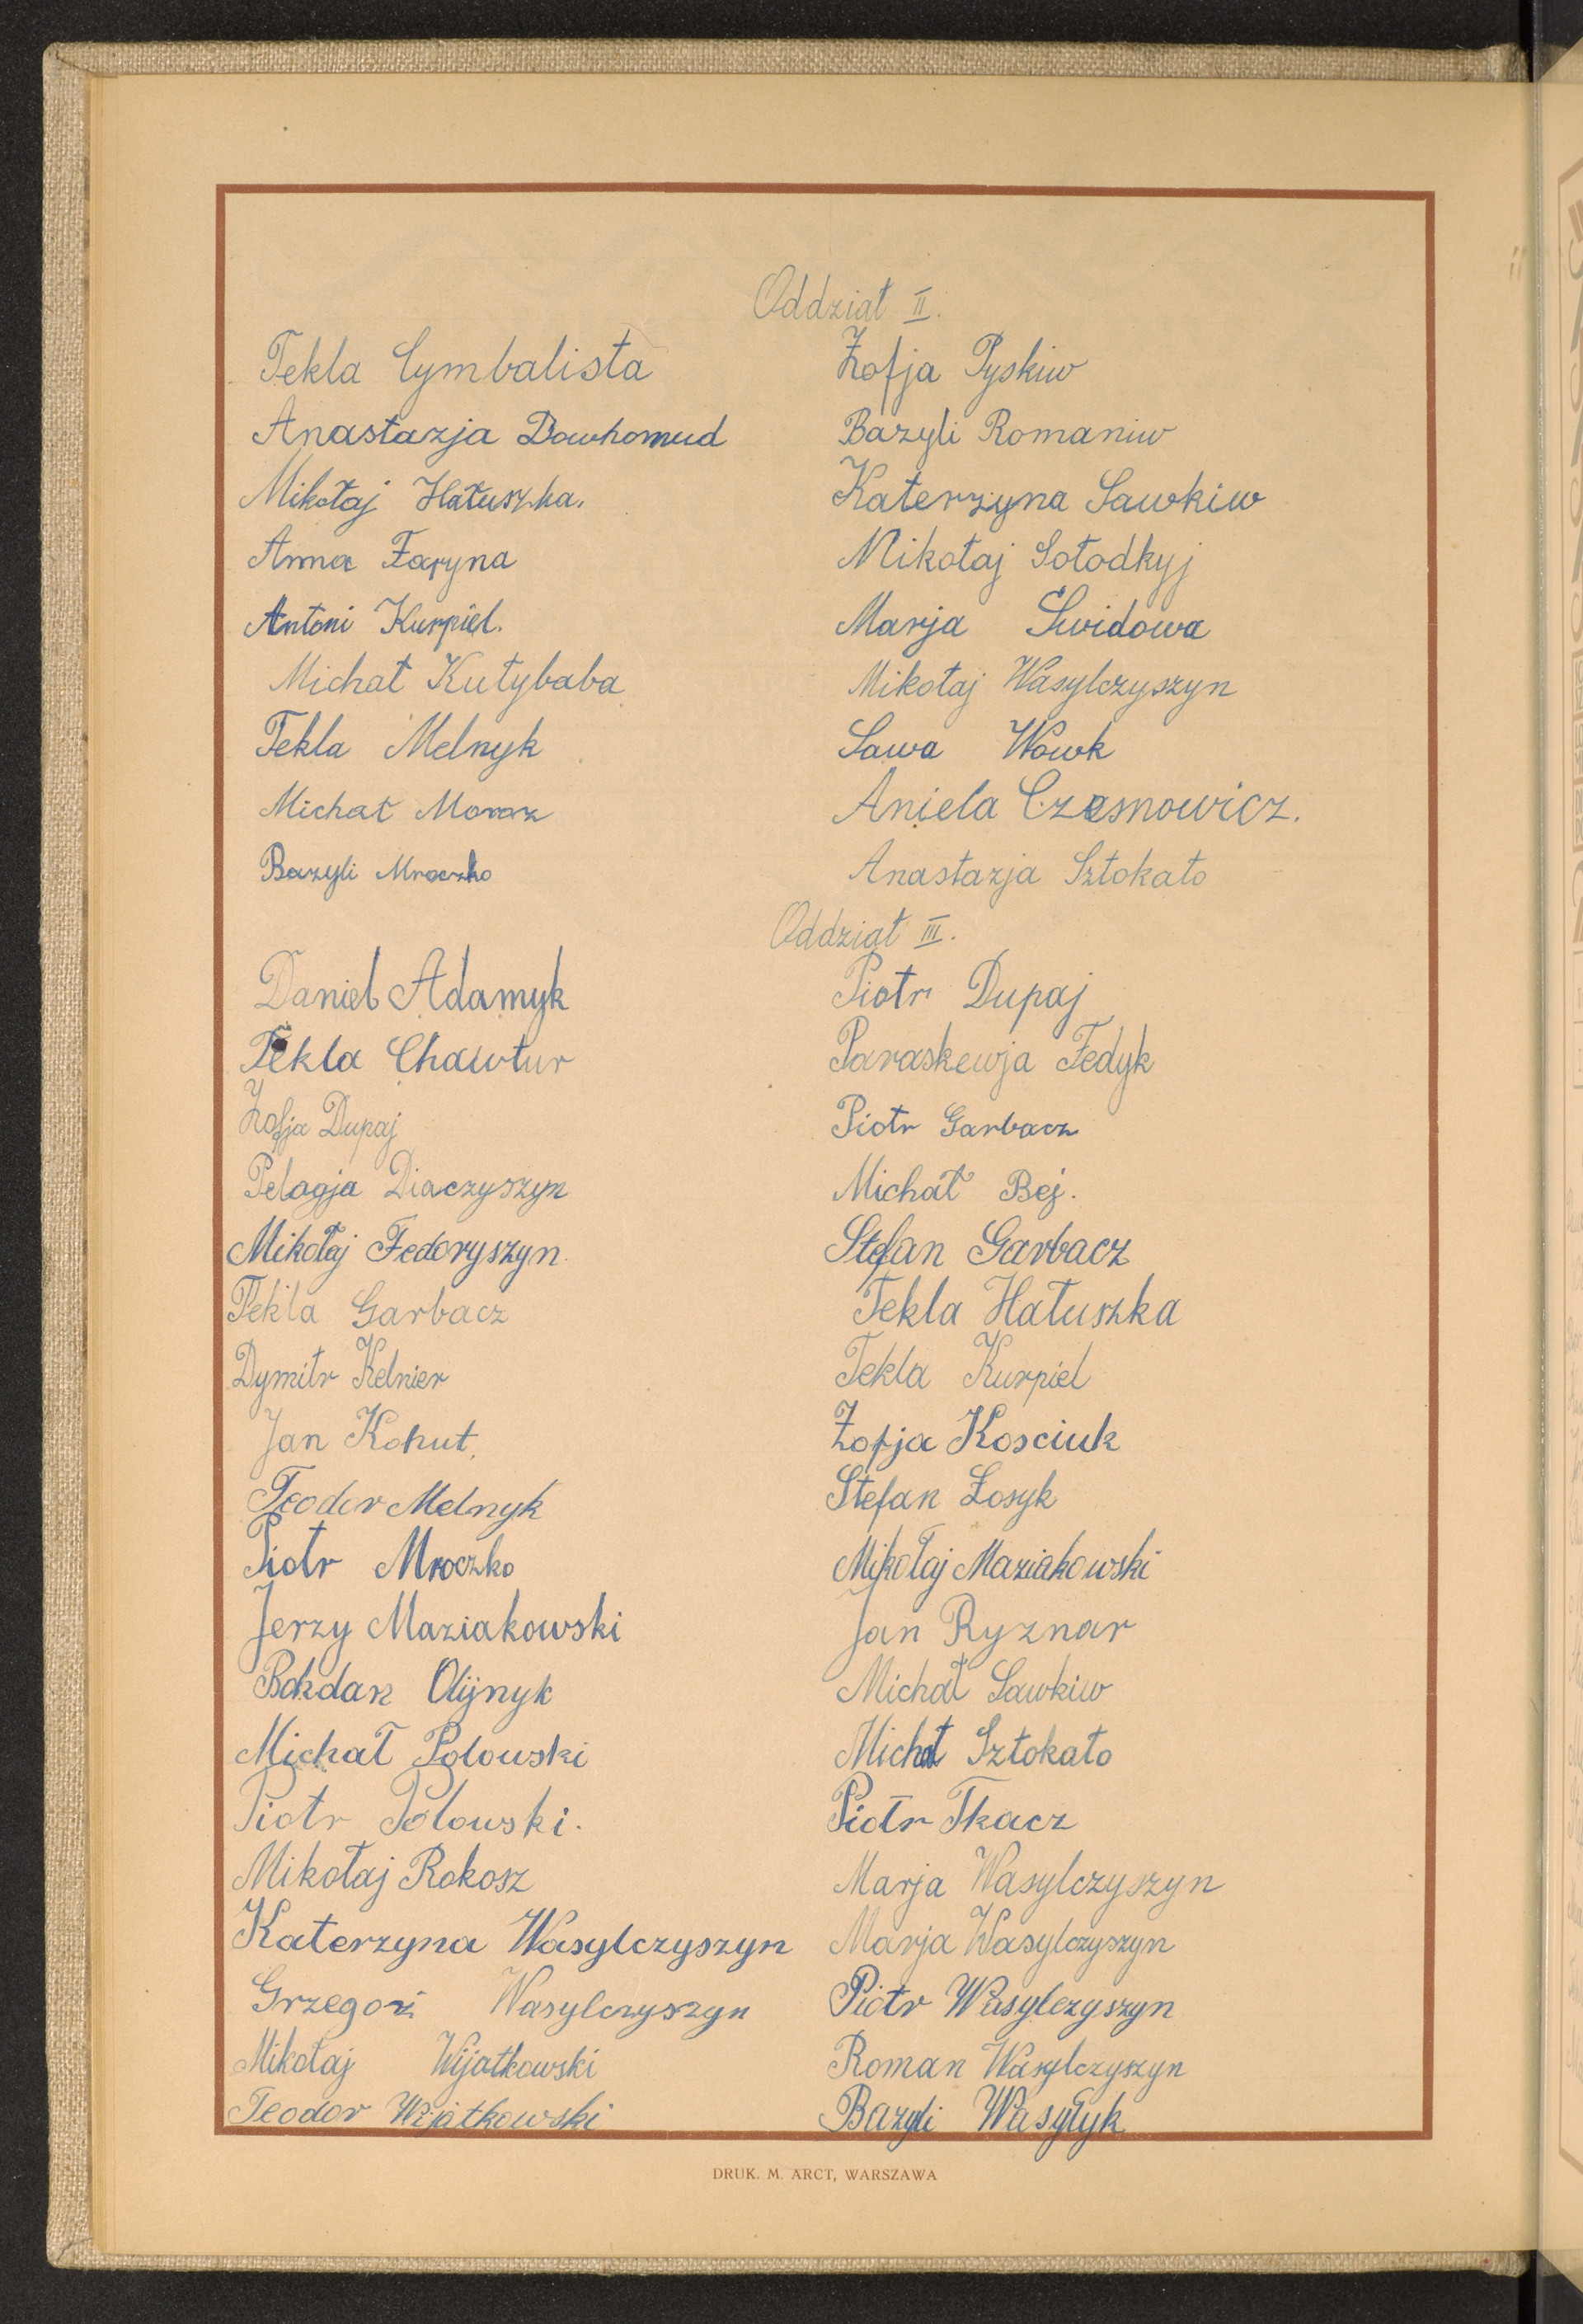 Oddział II.
Tekla Cymbalista
Anastazja Dowhomud
Mikołaj Hałuszka.
Anna Zaryna
Antoni Kurpiel.
Michał Kutybaba
Tekla Melnyk
Michał Moroz
Bazyli Mroczko
Zofja Pyskiw
Bazyli Romaniw
Katerzyna Sawkiw
Mikołaj Sołodkyj
Marja Świdowa
Mikołaj Wasylczyszyn
Sawa Wowk
Aniela Czesnowicz.
Anastazja Sztokało
Oddział III.
Daniel Adamyk
Tekla Chawtur
Zofja Dupaj
Pelagja Diaczyszyn
Mikołaj Fedoryszyn
Tekla Garbacz
Dymitr Kelnier
Jan Kohut
Teodor Melnyk
Piotr Mroczko
Jerzy Maziakowski
Bohdan Olijnyk
Michał Polowski
Piotr Polowski.
Mikołaj Rokosz
Katerzyna Wasylczyszyn
Grzegorz Wasylczyszyn
Mikołaj Wijatkowski
Teodor Wijatkowski
Piotr Dupaj
Paraskewja Fedyk
Piotr Garbacz
Michał Bej.
Stefan Garbacz
Tekla Hałuszka
Tekla Kurpiel
Zofja Kosciuk
Stefan Łosyk
Mikołaj Maziakowski
Jan Ryznar
Michał Sawkiw
Michał Sztokało
Piotr Tkacz
Marja Wasylczyszyn
Marja Wasylczyszyn
Piotr Wasylczyszyn
Roman Wasylczyszyn
Bazyli Wasyłyk
DRUK. M. ARCT, WARSZAWA